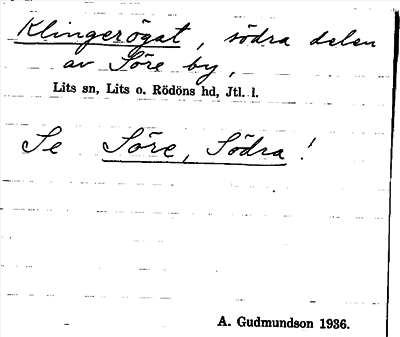 Klingerögat, södra delen
av Söre by,
Lits sn, Lits o. Rödöns hd, Jtl. l.
Se Söre, Södra!
A. Gudmundson 1936.